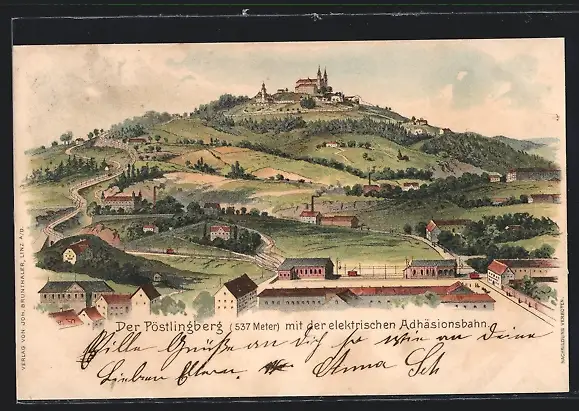 Der Pöstlingberg (537 Meter) mit der elektrischen Adhäsionsbahn.
Viele Grüße an dich so wie an deine
Lieben Eltern. Anna Sch
VERLAG VON JOH. BRUNTHALER, LINZ a/D.
NACHBILDUNG VERBOTEN.